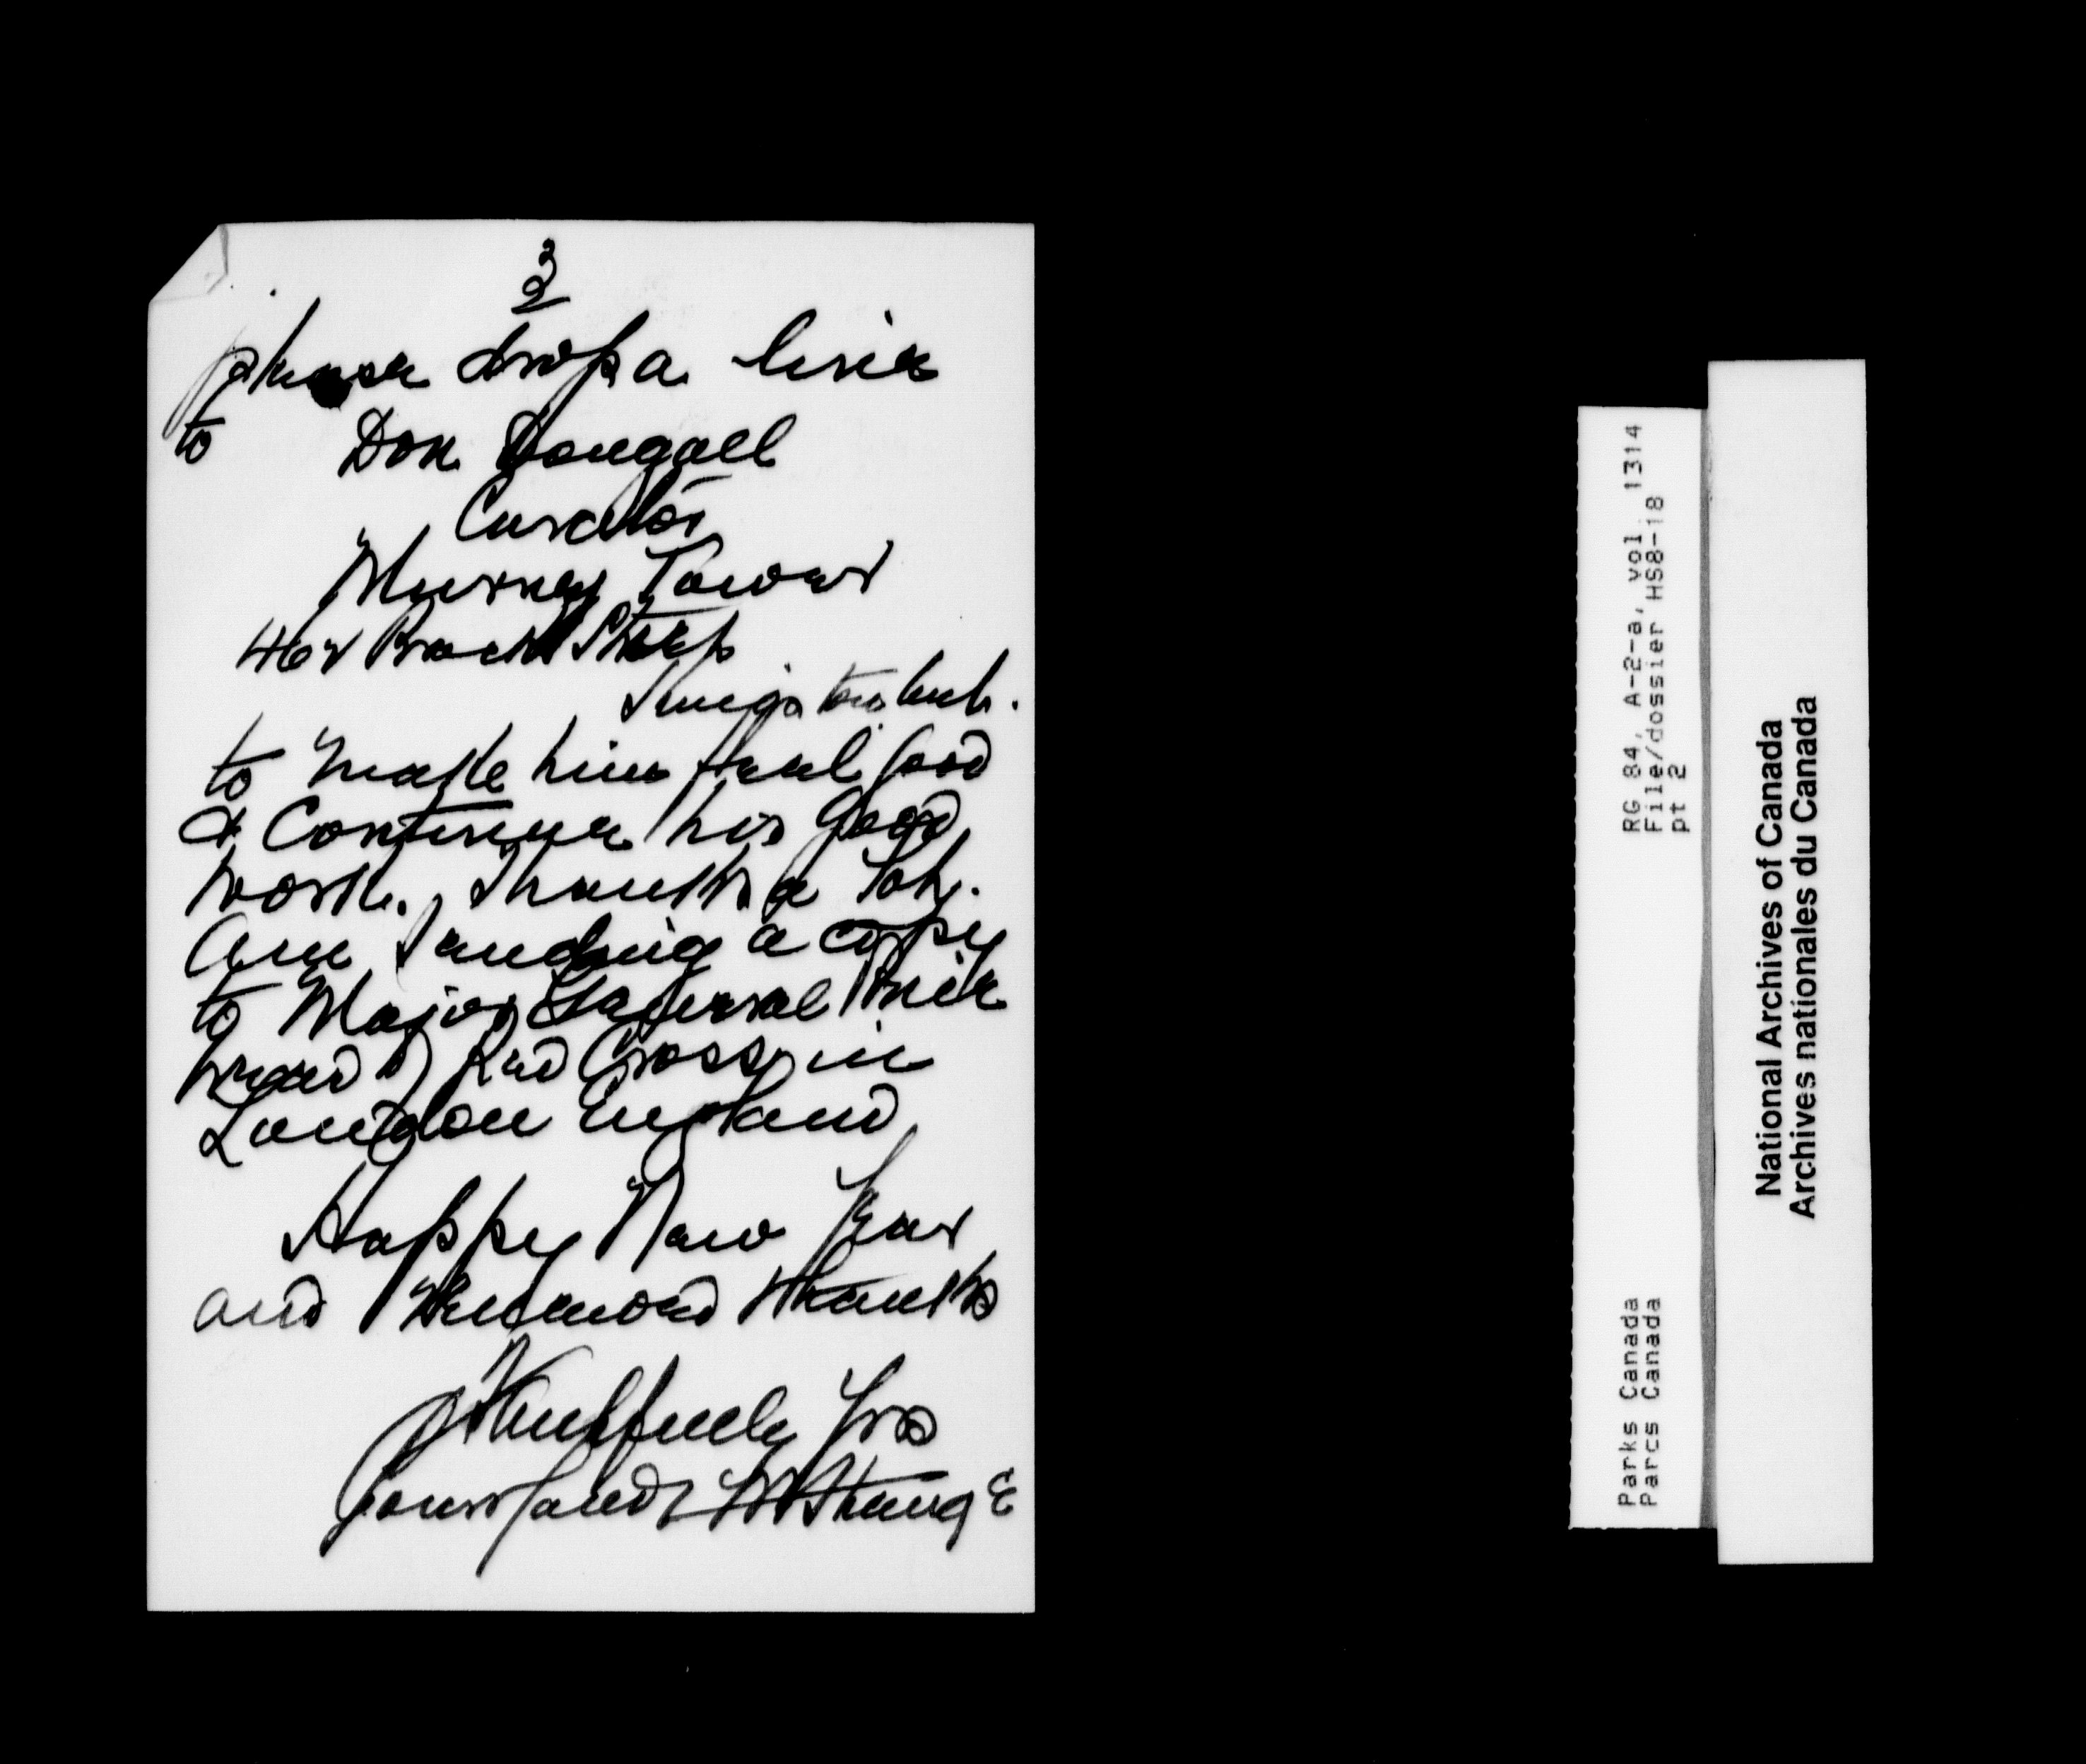 3
please drop a line
to Don Dougall
Curator
Murney Tower
462 Brock Street
Kingston Ont.
to make him feel good
& Continue his good
work. Thanks a lot.
Am sending a copy
to Major General
head of Red Cross in
London England
Happy New Year
and Renewed thanks
Thankfully Yrs
Strange
RG 84, A-2-a, vol. 1314
File/dossier HS8-18
pt 2
Parks Canada
Parcs Canada
National Archives of Canada
Archives nationales du Canada